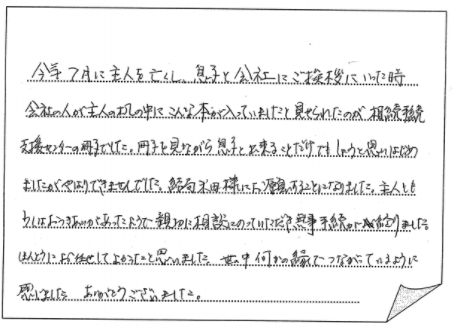 今年7月に主人を亡くし、息子と会社にご挨拶にいった時
会社の人が主人の机の中にこんな本が入っていましたと見せられたのが相続手続
支援センターの冊子でした。冊子を見ながら息子と出来ることだけでもしようと思いはじめ
ましたがやはりできませんでした。結局 米田様にお願いすることになりました。主人とも
うしばおつきあいがあったようで親切に相談にのっていただき無事手続が終りました
ほんとうにお任せしてよかったと思いました。世の中何かの縁でつながっているように
感じました ありがとうございました。